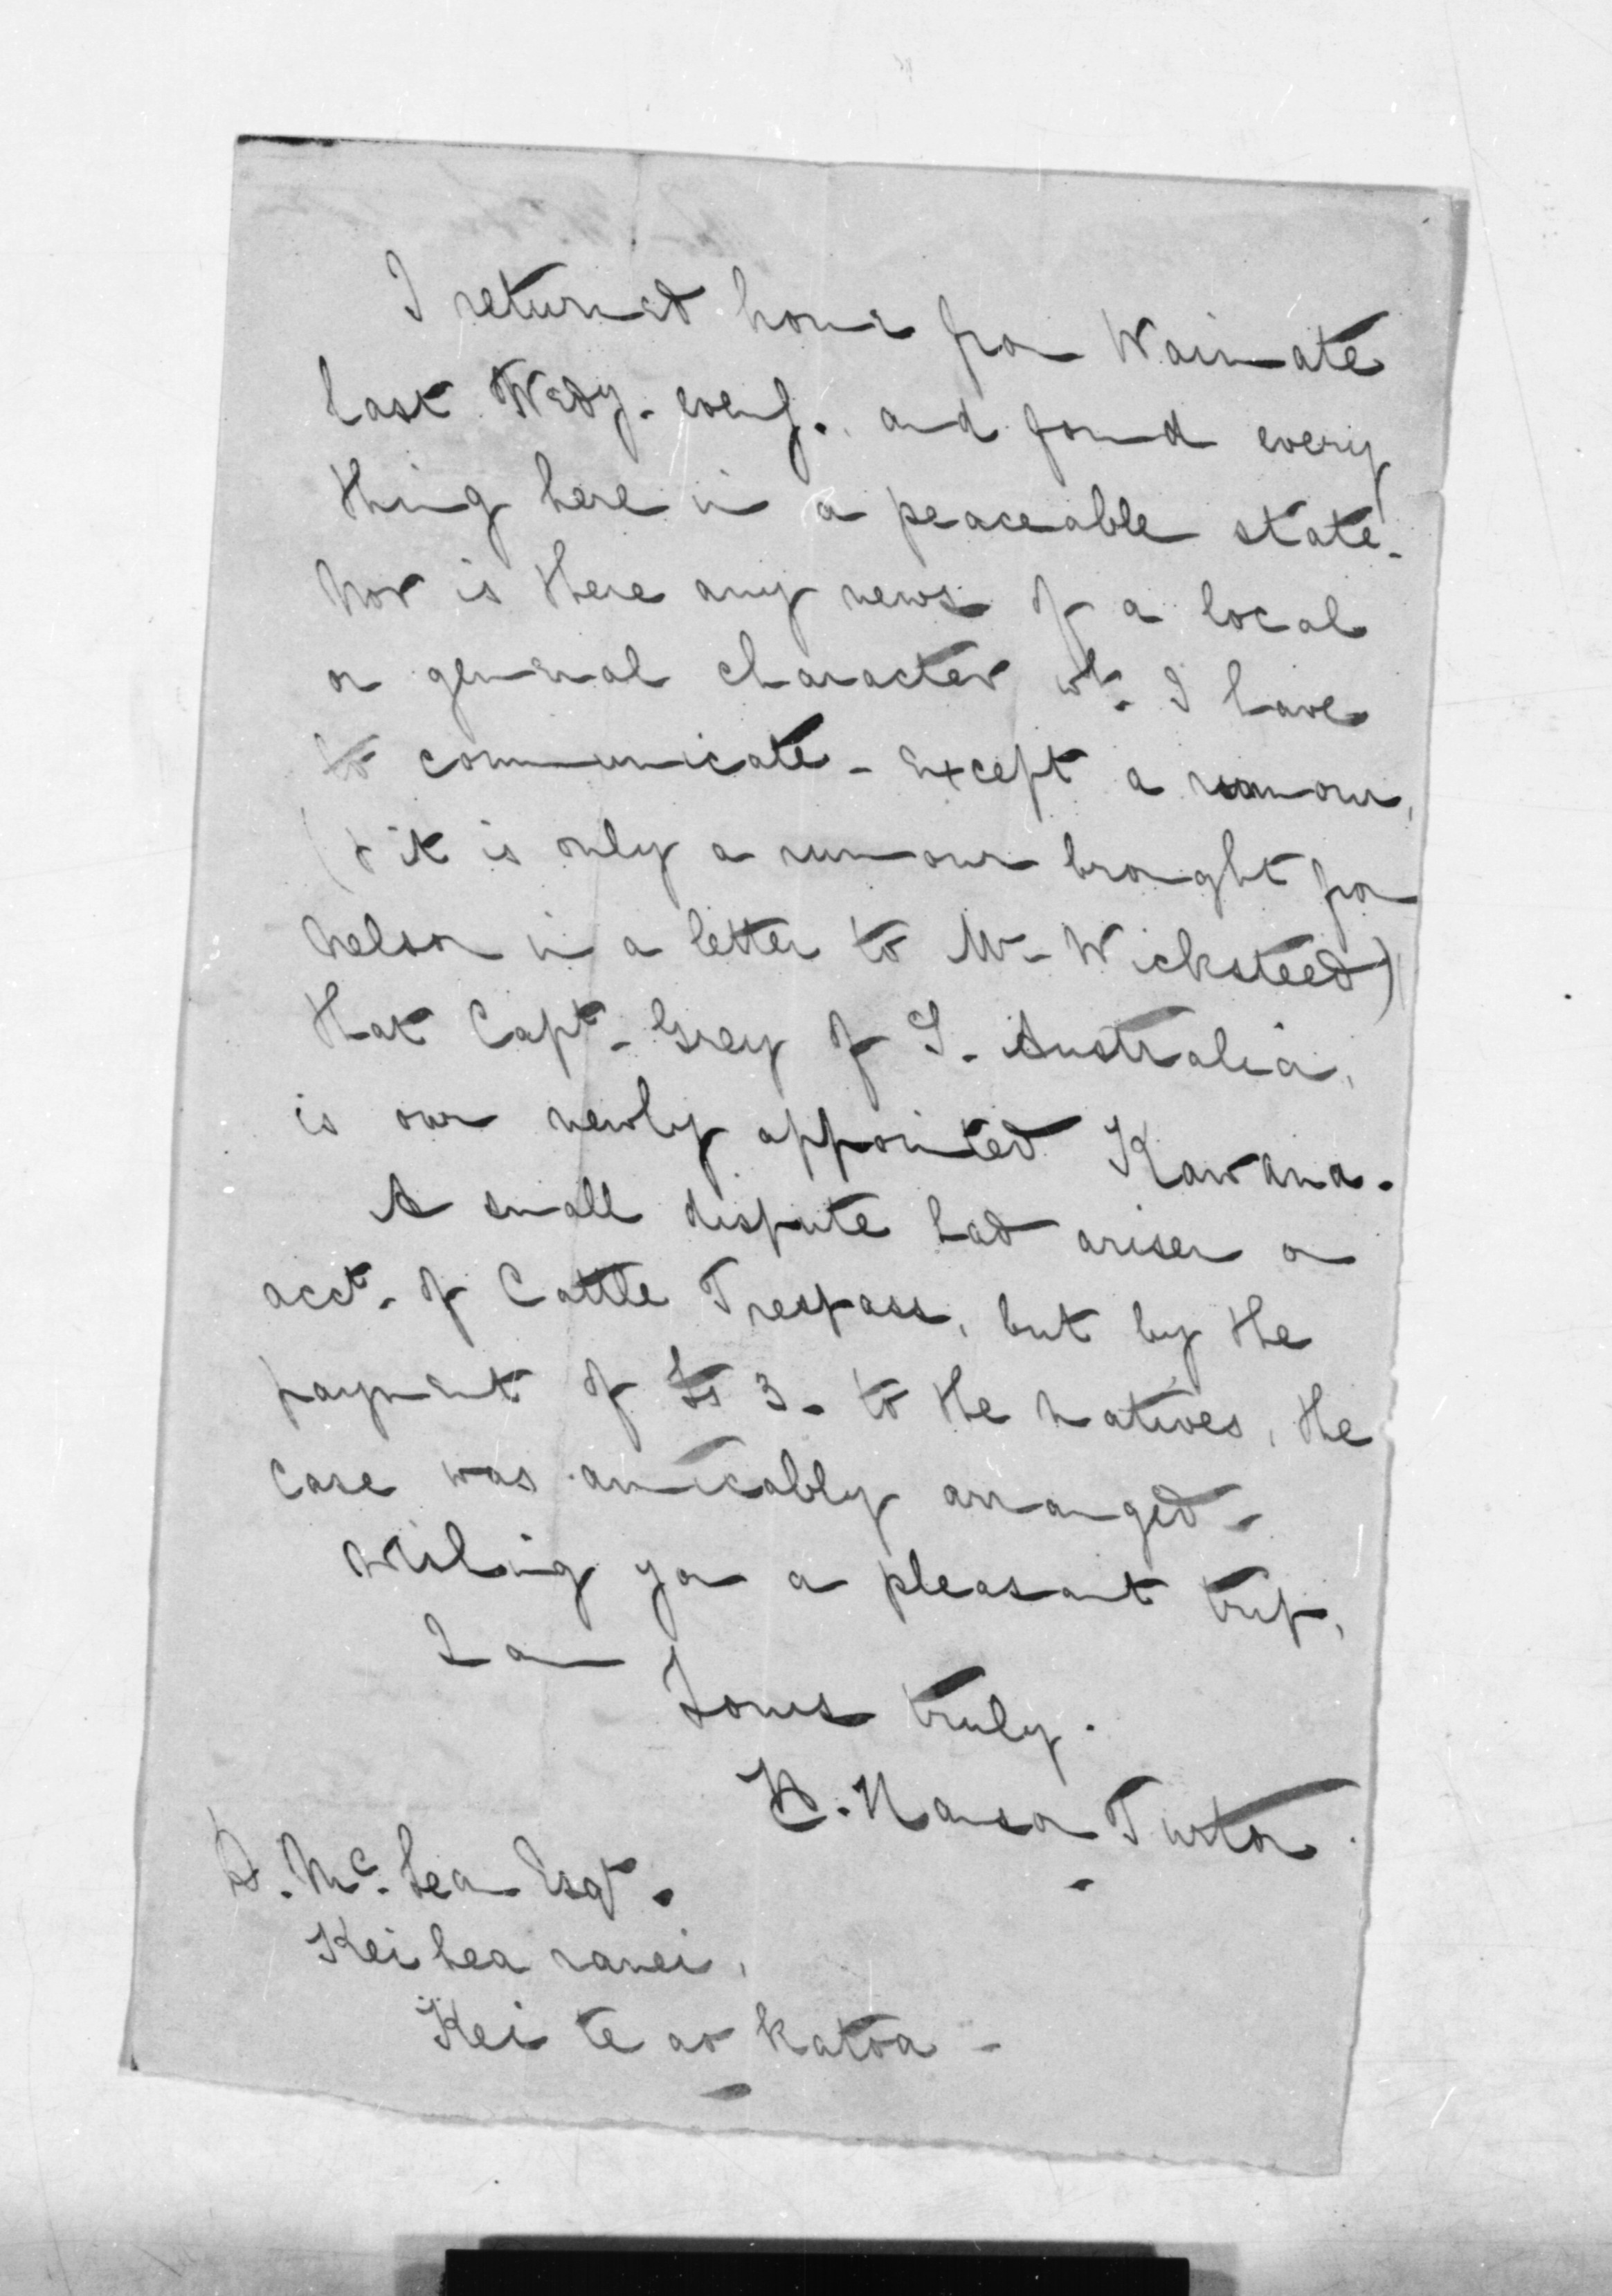 I returned home from Waimate
last Wedy. eveng. and found every
thing here in a peaceable state.
Nor is there any news of a local
or general character wh. I have
to communicate - except a rumour,
(& it is only a rumour brought from
Nelson in a letter to Mr. Wicksteed)
that Capt. Grey of S. Australia,
is our newly appointed Kawana.
A small dispute had arisen on
acct. of Cattle Trespass, but by the
payment of £s 3. to the natives, the
case was amicably arranged -
Wishing you a pleasant trip,
I am
Yours truly.
H. Hanson Turton.
D. McLean Esqr.
Kei hea ranei,
Kei te ao katoa -